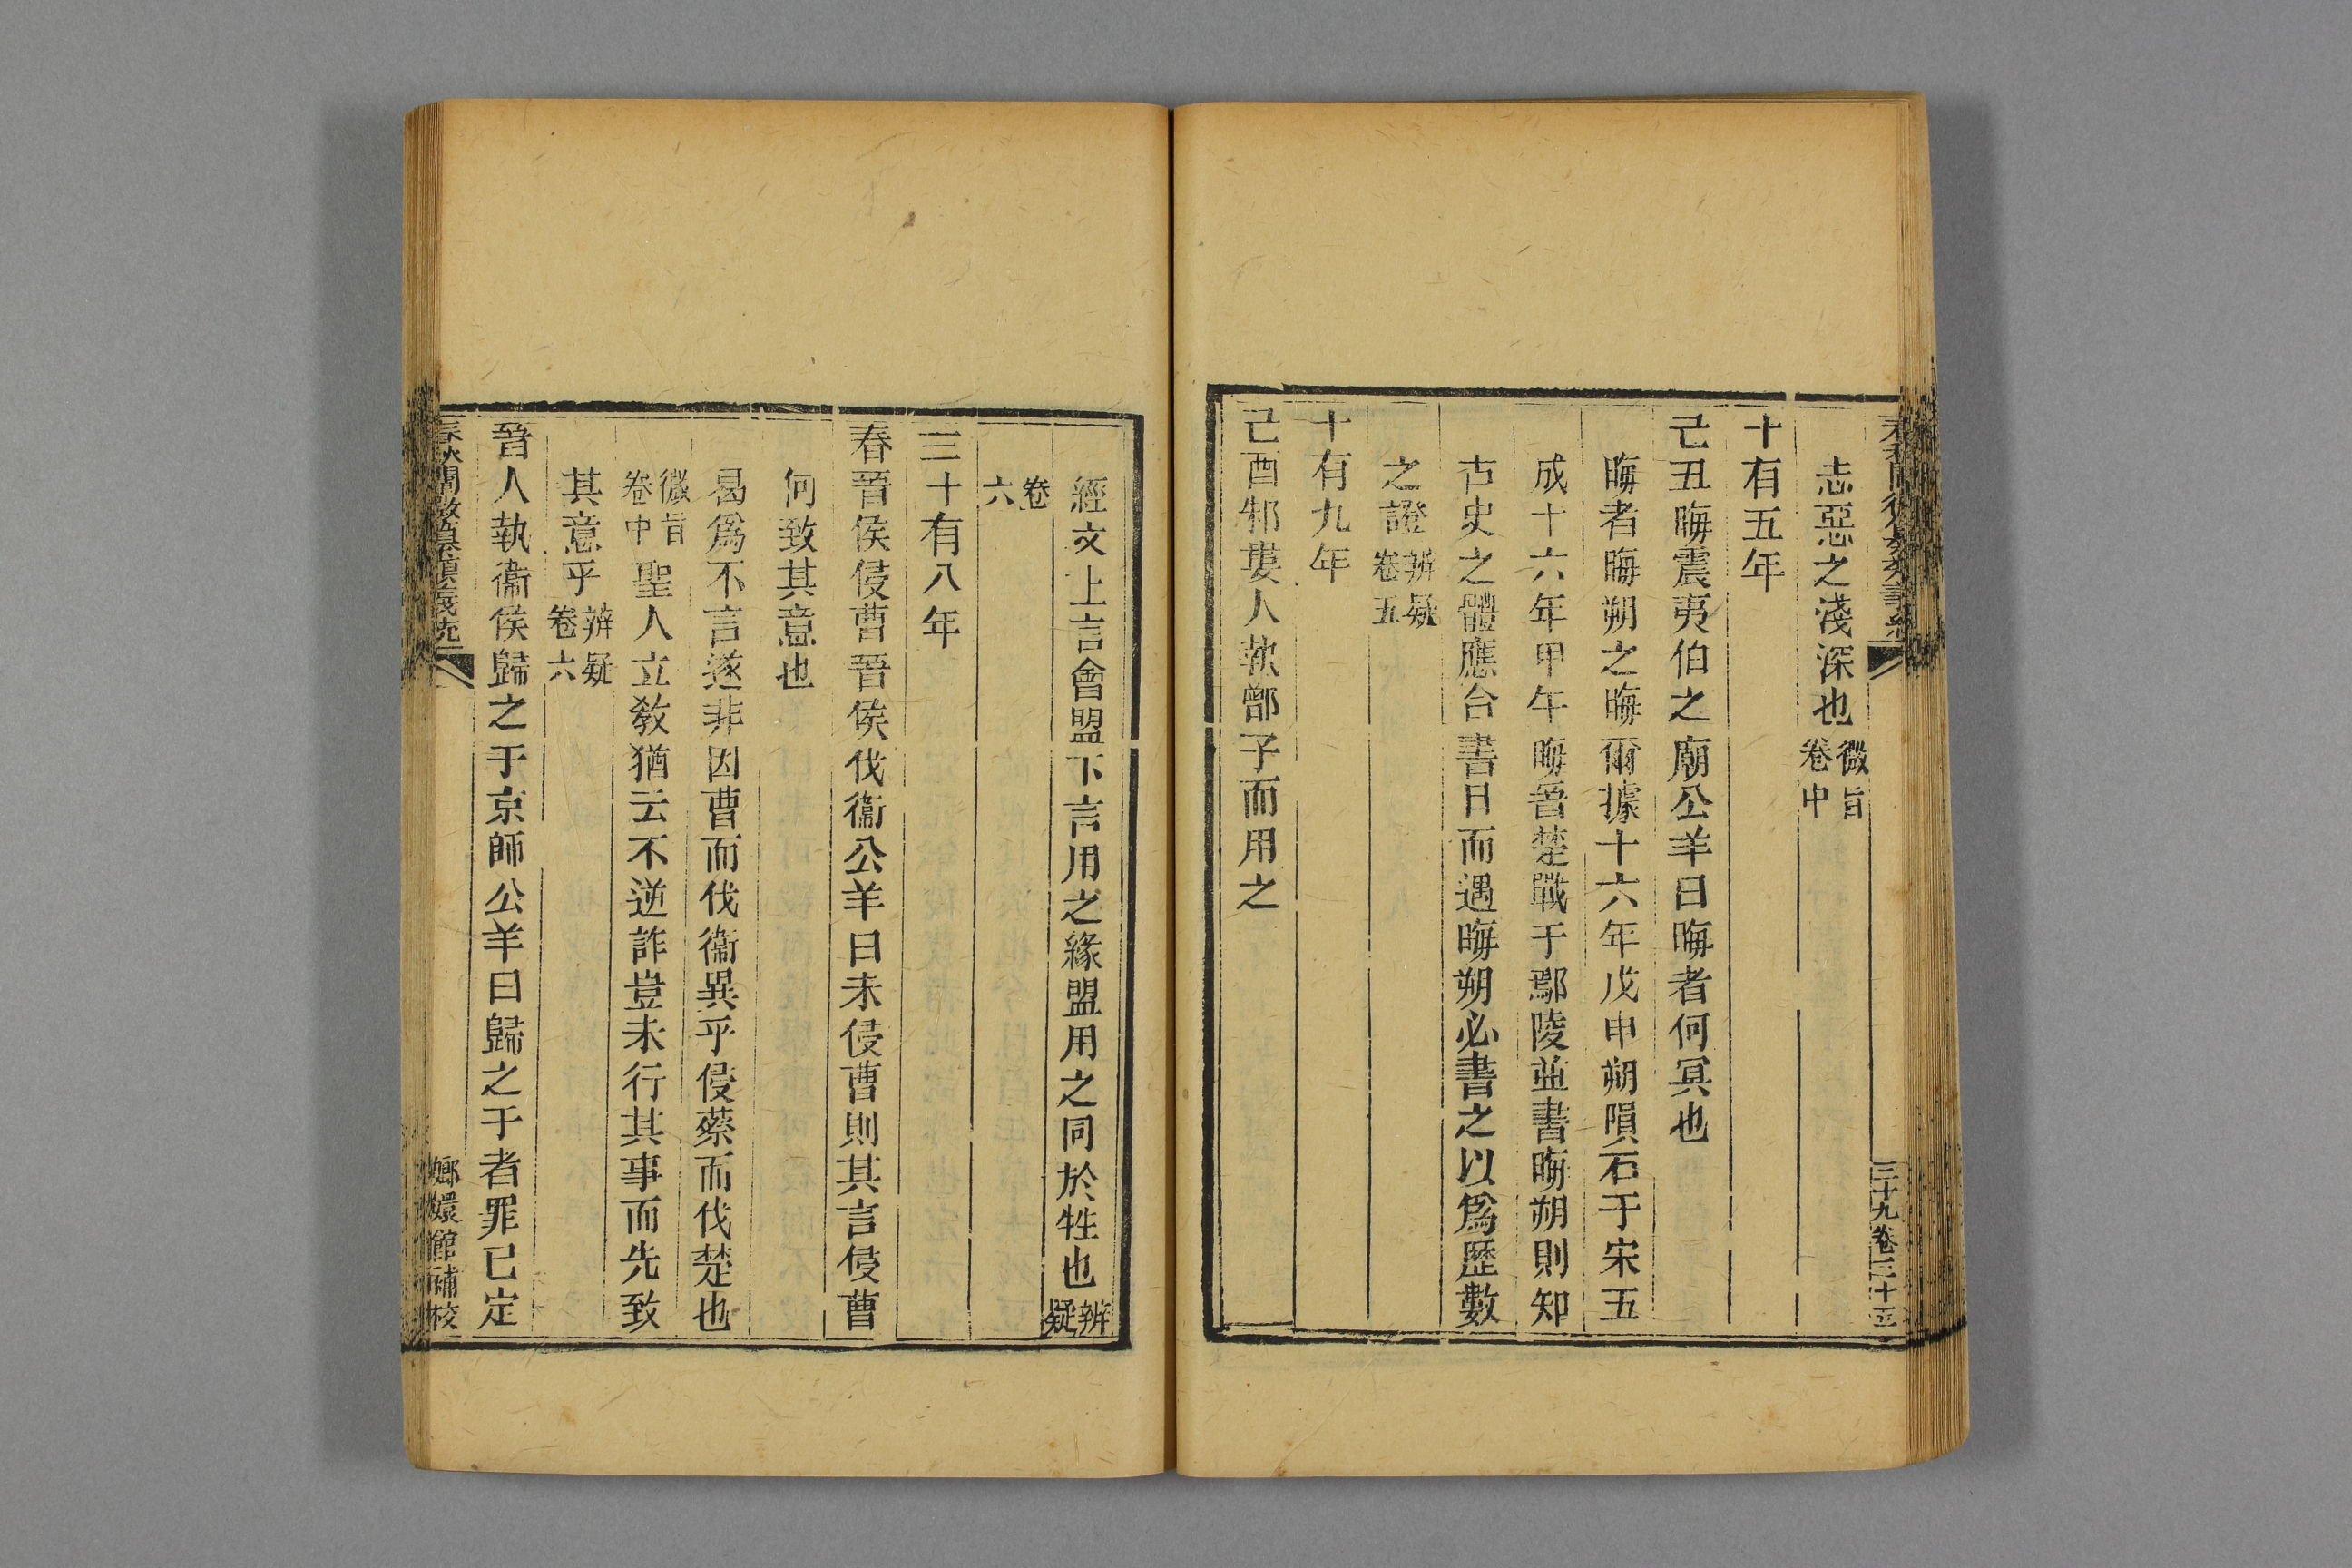 志惡之淺深也微旨卷中
十有五年
己丑晦震夷伯之廟公羊曰晦者何冥也
晦者晦朔之晦爾據十六年戊申朔隕石于宋五
成十六年甲午晦晉楚戰于鄢陵並書晦朔則知
古史之體應合書日而遇晦朔必書之以爲歷數
之證辨疑卷五
十有九年
己酉邾婁人執鄫子而用之
三十九卷三十五
經文上言會盟下言用之緣盟用之同於牲也辨疑
卷六
三十有八年
春晉侯侵曹晉侯伐衞公羊曰未侵曹則其言侵曹
何致其意也
曷爲不言遂非因曹而伐衞異乎侵蔡而伐楚也
微旨卷中聖人立教猶云不逆詐豈未行其事而先致
其意乎辨疑卷六
晉人執衞侯歸之于京師公羊曰歸之于者罪已定
嫏嬛館補校